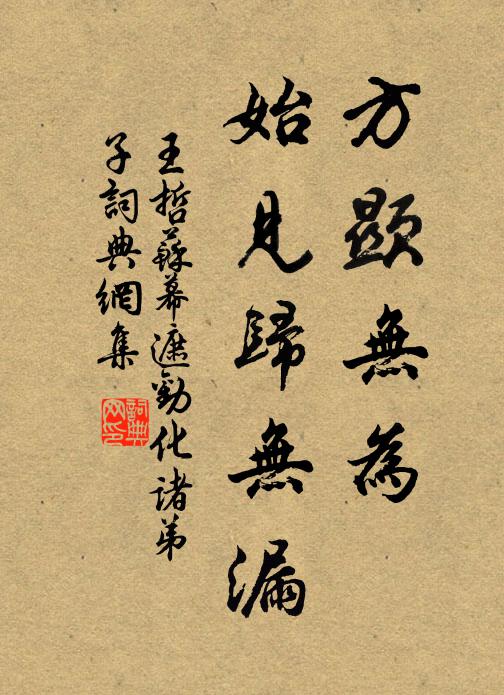 方顯無為
始見歸無漏
王哲蘇幕遮勸化諸弟
子詞典網集
詞典
网印